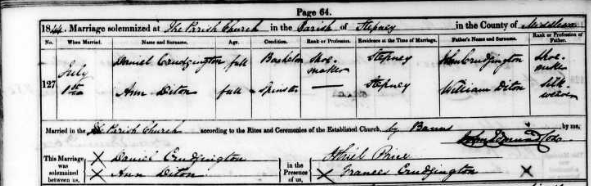 Page 64.
1844. Marriage solemnized at The Parish Church in the Parish of Stepney in the County of Middlesex
No. When Married. Name and Surname. Age. Condition. Rank or Profession. Residence at the Time of Marriage. Father's Name and Surname. Rank or Profession of Father.
127 July Daniel Crudgington full Bachelor Shoe-maker Stepney John Crudgington Shoe-maker
Ann Diton full Spinster — Stepney William Diton Silk weaver
Married in the Parish Church according to the Rites and Ceremonies of the Established Church, by Banns by me,
This Marriage was solemnized between us, X Daniel Crudgington in the Presence of us, Price
X Ann Diton X Frances Crudgington X